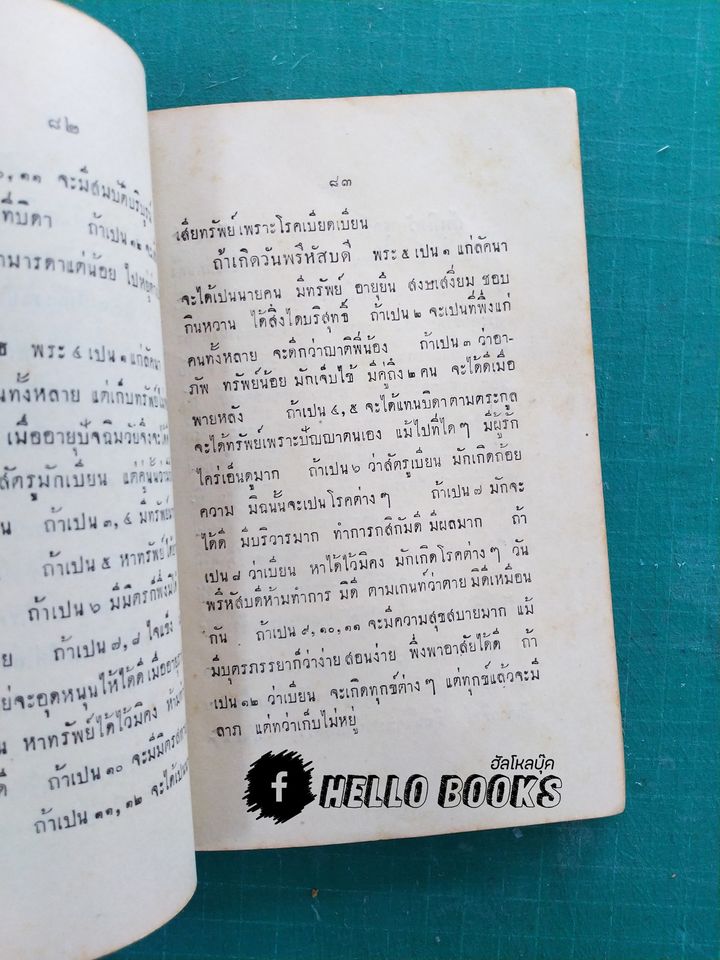 ๘๒
๑๑ จะมีสมบัติบริบูรณ์
ที่บิดา ถ้าเปน ๑๒
มารดาแต่น้อย
พระ ๔ เปน ๑ แก่ลัคนา
นทั้งหลาย แต่เก็บทรัพย์
เมื่ออายุปัจฉิมวัยจึ่งจะได้
สัตรูมักเบียน
ถ้าเปน ๓, ๔ มีทรัพย์
ถ้าเปน ๕ หาทรัพย์ได้
ถ้าเปน ๖ มีมิตรก็พึ่ง
ถ้าเปน ๗, ๘ ใจแข็ง
จะอุดหนุนให้ได้ดี เมื่ออายุ
หาทรัพย์ได้ไว้มิคง
ถ้าเปน ๑๐ จะมีมิตร
ถ้าเปน ๑๑, ๑๒ จะได้เปน
๘๓
เสียทรัพย์ เพราะโรคเบียดเบียน
ถ้าเกิดวันพรึหัสบดี พระ ๕ เปน ๑ แก่ลัคนา
จะได้เปนนายคน มีทรัพย์ อายุยืน สงบเสงี่ยม ชอบ
กินหวาน ได้สิ่งใดบริสุทธิ์ ถ้าเปน ๒ จะเปนที่พึ่งแก่
คนทั้งหลาย จะดีกว่าญาติพี่น้อง ถ้าเปน ๓ ว่าอา-
ภัพ ทรัพย์น้อย มักเจ็บไข้ มีคู่ถึง ๒ คน จะได้ดีเมื่อ
พายหลัง ถ้าเปน ๔, ๕ จะได้แทนบิดาตามตระกูล
จะได้ทรัพย์เพราะปัญญาตนเอง แม้ไปที่ใด ๆ มีผู้รัก
ใคร่เอ็นดูมาก ถ้าเปน ๖ ว่าสัตรูเบียน มักเกิดถ้อย
ความ มิฉนั้นจะเปนโรคต่าง ๆ ถ้าเปน ๗ มักจะ
ได้ดี มีบริวารมาก ทำการกสิกัมดี มีผลมาก ถ้า
เปน ๘ ว่าเบียน หาได้ไว้มิคง มักเกิดโรคต่าง ๆ วัน
พรึหัสบดีห้ามทำการ มิดี ตามเกนท์ว่าตาย มิดีเหมือน
กัน ถ้าเปน ๙, ๑๐, ๑๑ จะมีความสุขสบายมาก แม้
มีบุตรภรรยาก็ว่าง่าย สอนง่าย พึ่งพาอาสัยได้ดี ถ้า
เปน ๑๒ ว่าเบียน จะเกิดทุกข์ต่าง ๆ แต่ทุกข์แล้วจะมี
ลาภ แต่ทว่าเก็บไม่หยู่
ฮัลโหลบุ๊ค
f HELLO BOOKS